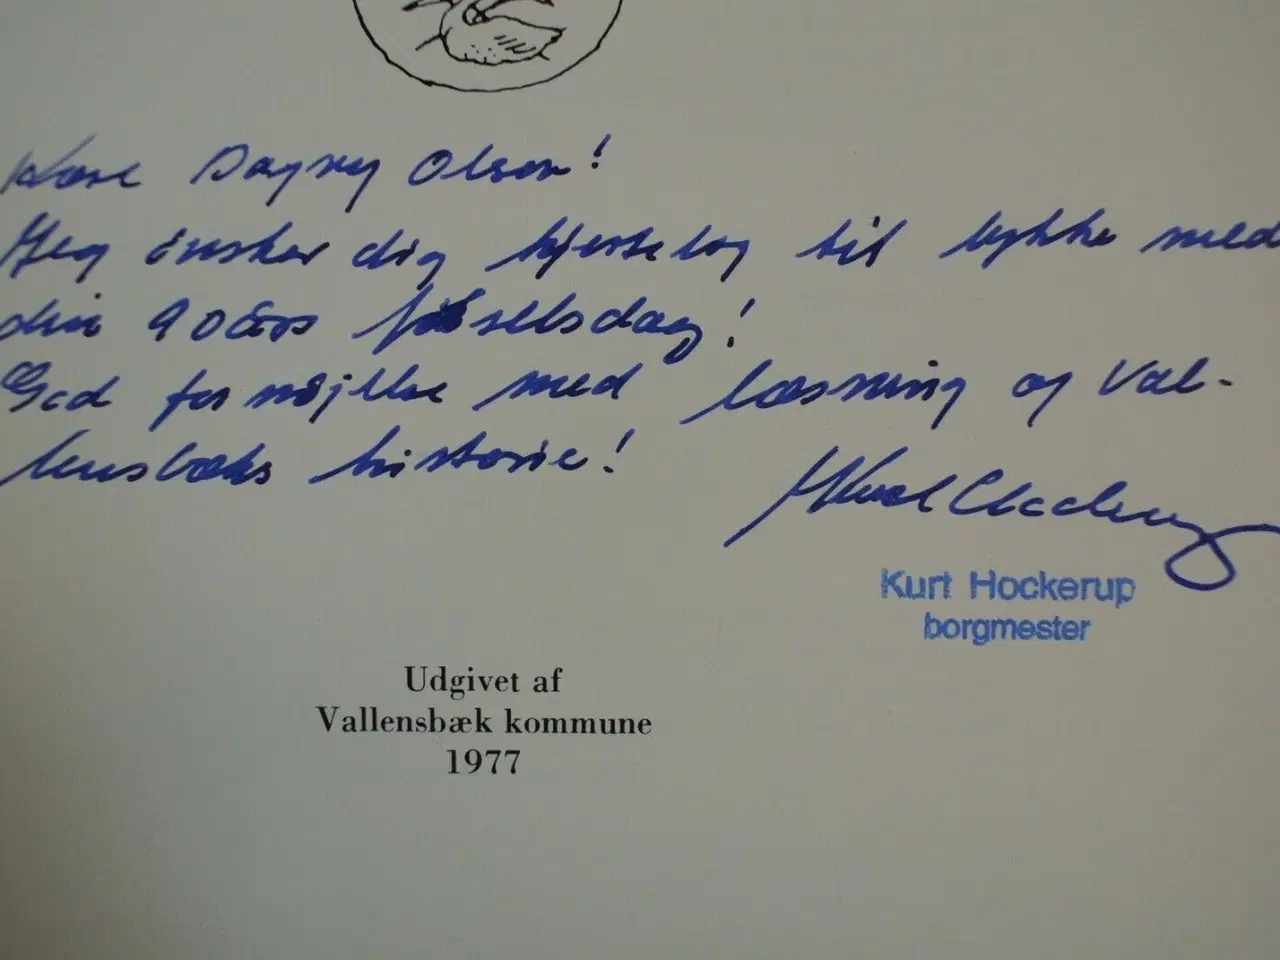 Kære Dagny Olsen!
Jeg ønsker dig hjertelig til lykke med
din 90 års fødselsdag!
God fornøjelse med læsning af Val-
lensbæks historie!
Kurt Hockerup
Kurt Hockerup
borgmester
Udgivet af
Vallensbæk kommune
1977